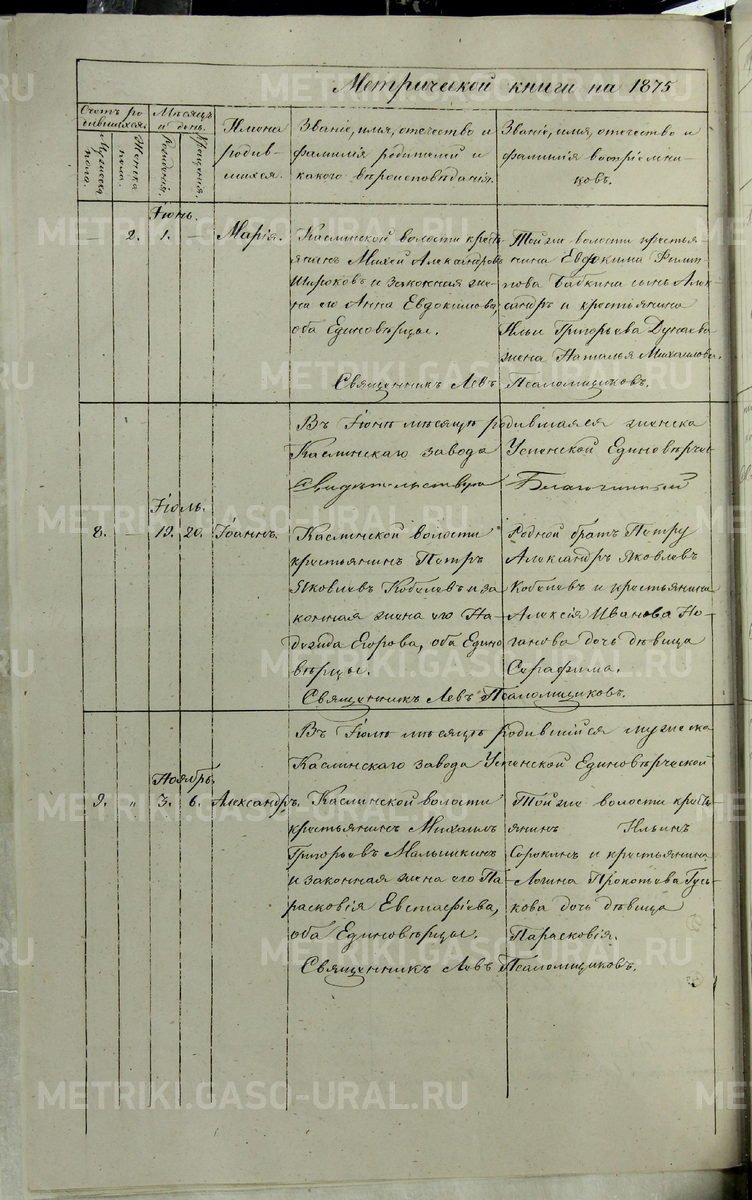 Метрической книги на 1875
Счетъ родившихся.
Мужска пола.
Женска пола.
Мѣсяцъ и день.
Рожденія.
Крещенія.
Имена родившихся.
Званіе, имя, отечество и
фамилія родителей и
какого вѣроисповѣданія.
Званіе, имя, отечество и
фамилія воспріемни-
ковъ.
Іюнь.
2. 1. — Марія.
Каслинской волости кресть-
янинъ Михей Александровъ
Широковъ и законная же-
на его Анна Евдокимова,
оба Единовѣрцы.
Той же волости крестья-
нина Евдокима Филип-
пова Бабкина сынъ Алек-
сандръ и крестьянина
Ильи Григорьева Дунаева
жена Наталья Михаилова.
Священникъ Левъ Псаломщиковъ.
Въ Іюнѣ мѣсяцѣ родившаяся женска
Каслинскаго завода Успенской Единовѣрчес
Свидѣтельствую Благочинный
Іюль.
8. — 19. 20. Іоаннъ.
Каслинской волости
крестьянинъ Петръ
Яковлевъ Кобелевъ и за-
конная жена его На-
дежда Егорова, оба Едино-
вѣрцы.
Родной братъ Петру
Александръ Яковлевъ
Кобелевъ и крестьянина
Алексія Иванова Но-
ганова дочь дѣвица
Серафима.
Священникъ Левъ Псаломщиковъ.
Въ Іюлѣ мѣсяцѣ родившійся мужеска
Каслинскаго завода Успенской Единовѣрческой
Ноябрь.
9. " 3. 6. Александръ.
Каслинской волости
крестьянинъ Михаилъ
Григорьевъ Малышкинъ
и законная жена его Па-
расковія Евстафіева,
оба Единовѣрцы.
Той же волости кресть-
янинъ Ильинъ
Сорокинъ и крестьянина
Логина Прокопьева Гусь-
кова дочь дѣвица
Парасковія.
Священникъ Левъ Псаломщиковъ.
METRIKI.GASO-URAL.RU